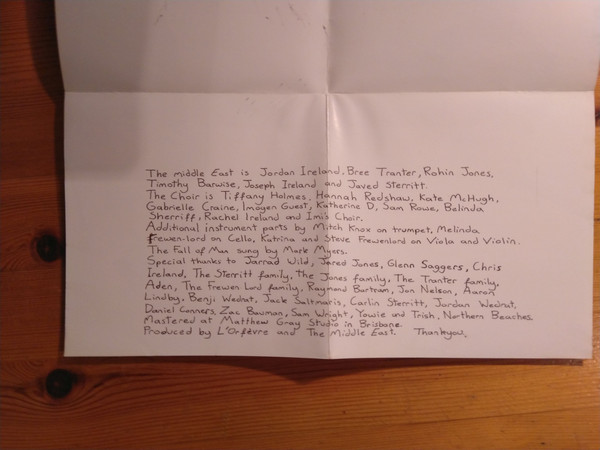 The middle East is Jordan Ireland. Bree Tranter, Rohin Jones,
Timothy Barwise, Joseph Ireland and Javed Sterritt.
The Choir is Tiffany Holmes, Hannah Redshaw, Kate McHugh,
Gabrielle Craine, Imogen Guest, Katherine D, Sam Rowe, Belinda
Sherriff, Rachel Ireland and Imi's Choir.
Additional instrument parts by Mitch Knox on trumpet, Melinda
Frewen-lord on Cello, Katrina and Steve Frewenlord on Viola and Violin.
The Fall of Man sung by Mark Myers.
Special thanks to Jarrad Wild, Jared Jones, Glenn Saggers, Chris
Ireland, The Sterritt family, the Jones family, The Tranter family,
Aden, The Frewen Lord family, Raymond Bartram, Jon Nelson, Aaron
Lindby, Benji Wednat, Jack Saltmaris, Carlin Sterritt, Jordan Wednat,
Daniel Conners, Zac Bauman, Sam Wright, Yowie and Trish, Northern Beaches
Mastered at Matthew Gray Studio in Brisbane
Produced by L'Orfèvre and The Middle East. Thankyou.